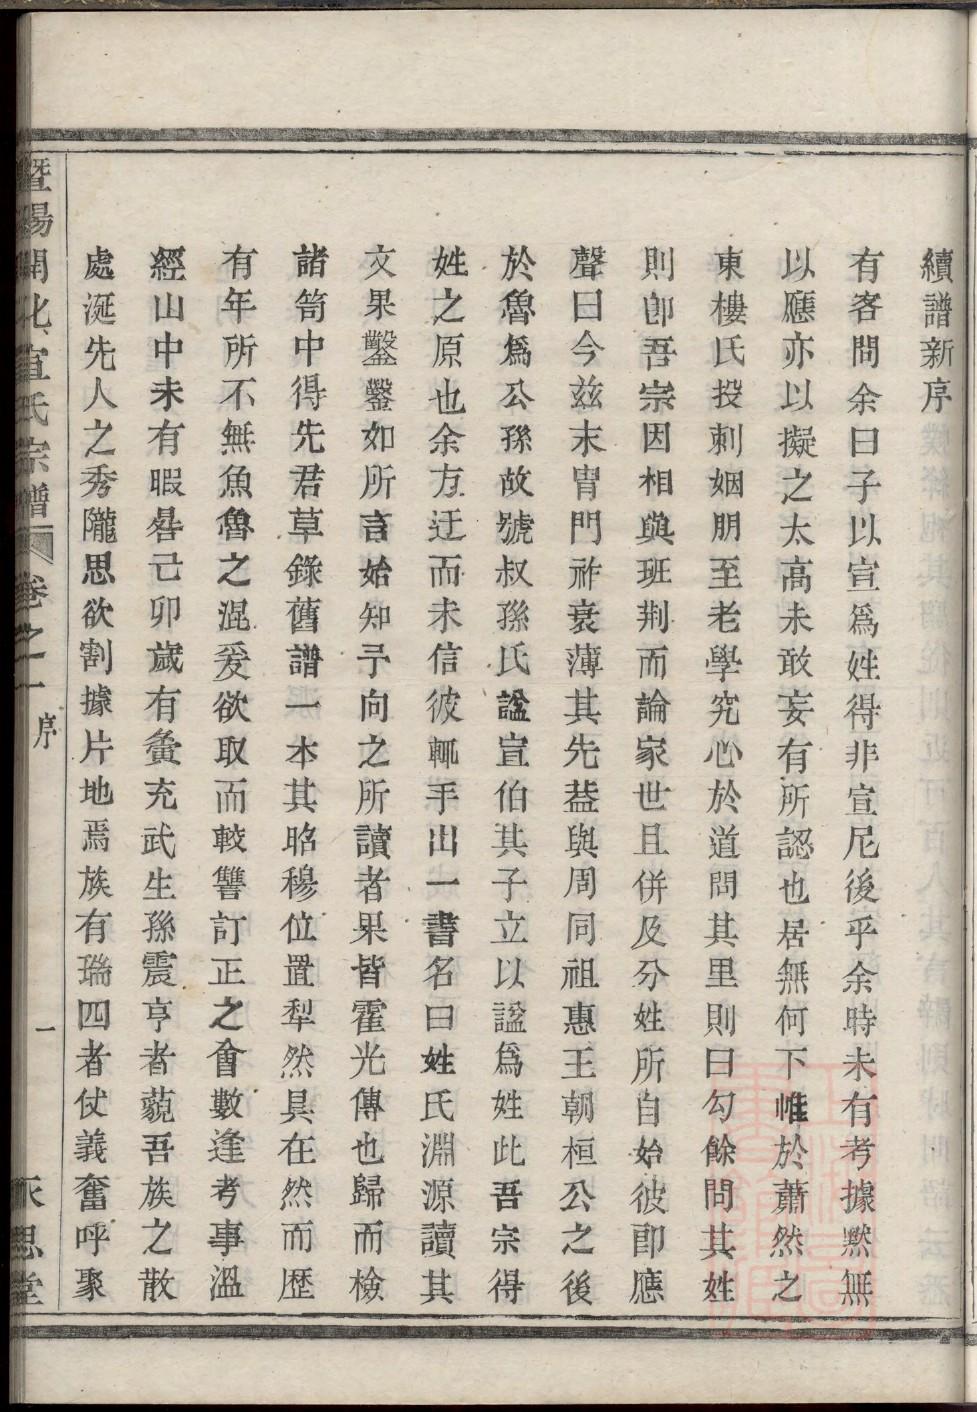 續譜新序
有客問余曰子以宣爲姓得非宣尼後乎余時未有考據默無
以應亦以擬之太高未敢妄有所認也居無何下帷於蕭然之
東樓氏投刺姻朋至老學究心於道問其里則曰勾餘問其姓
則卽吾宗因相與班荆而論家世且併及分姓所自始彼卽應
聲曰今兹末胄門祚衰薄其先葢與周同祖惠王朝桓公之後
於魯爲公孫故號叔孫氏諡宣伯其子立以諡爲姓此吾宗得
姓之原也余方迂而未信彼輒手出一書名曰姓氏淵源讀其
文果鑿鑿如所言始知予向之所讀者果皆霍光傳也歸而檢
諸笥中得先君草錄舊譜一本其昭穆位置犁然具在然而歷
有年所不無魚魯之混爰欲取而較讐訂正之會數逢考事溫
經山中未有暇晷己卯歲有黌充武生孫震亨者藐吾族之散
處涎先人之秀隴思欲割據片地焉族有瑞四者仗義奮呼聚
暨陽開化宣氏宗譜 卷之一 序 一 思堂